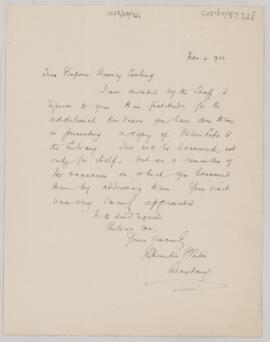 Nov. 4. 1902
Dear Professor Harvey Cushing
I am directed by the Staff to
express to you their gratitude for the
additional kindness you have done them
in presenting a copy of to
the Library. This will be honoured, not
only for itself, but as a reminder
of the occasion on which you honoured
them by addressing them. Your visit
was very appreciated
With kind regards
Believe me,
Yours sincerely
Secretary